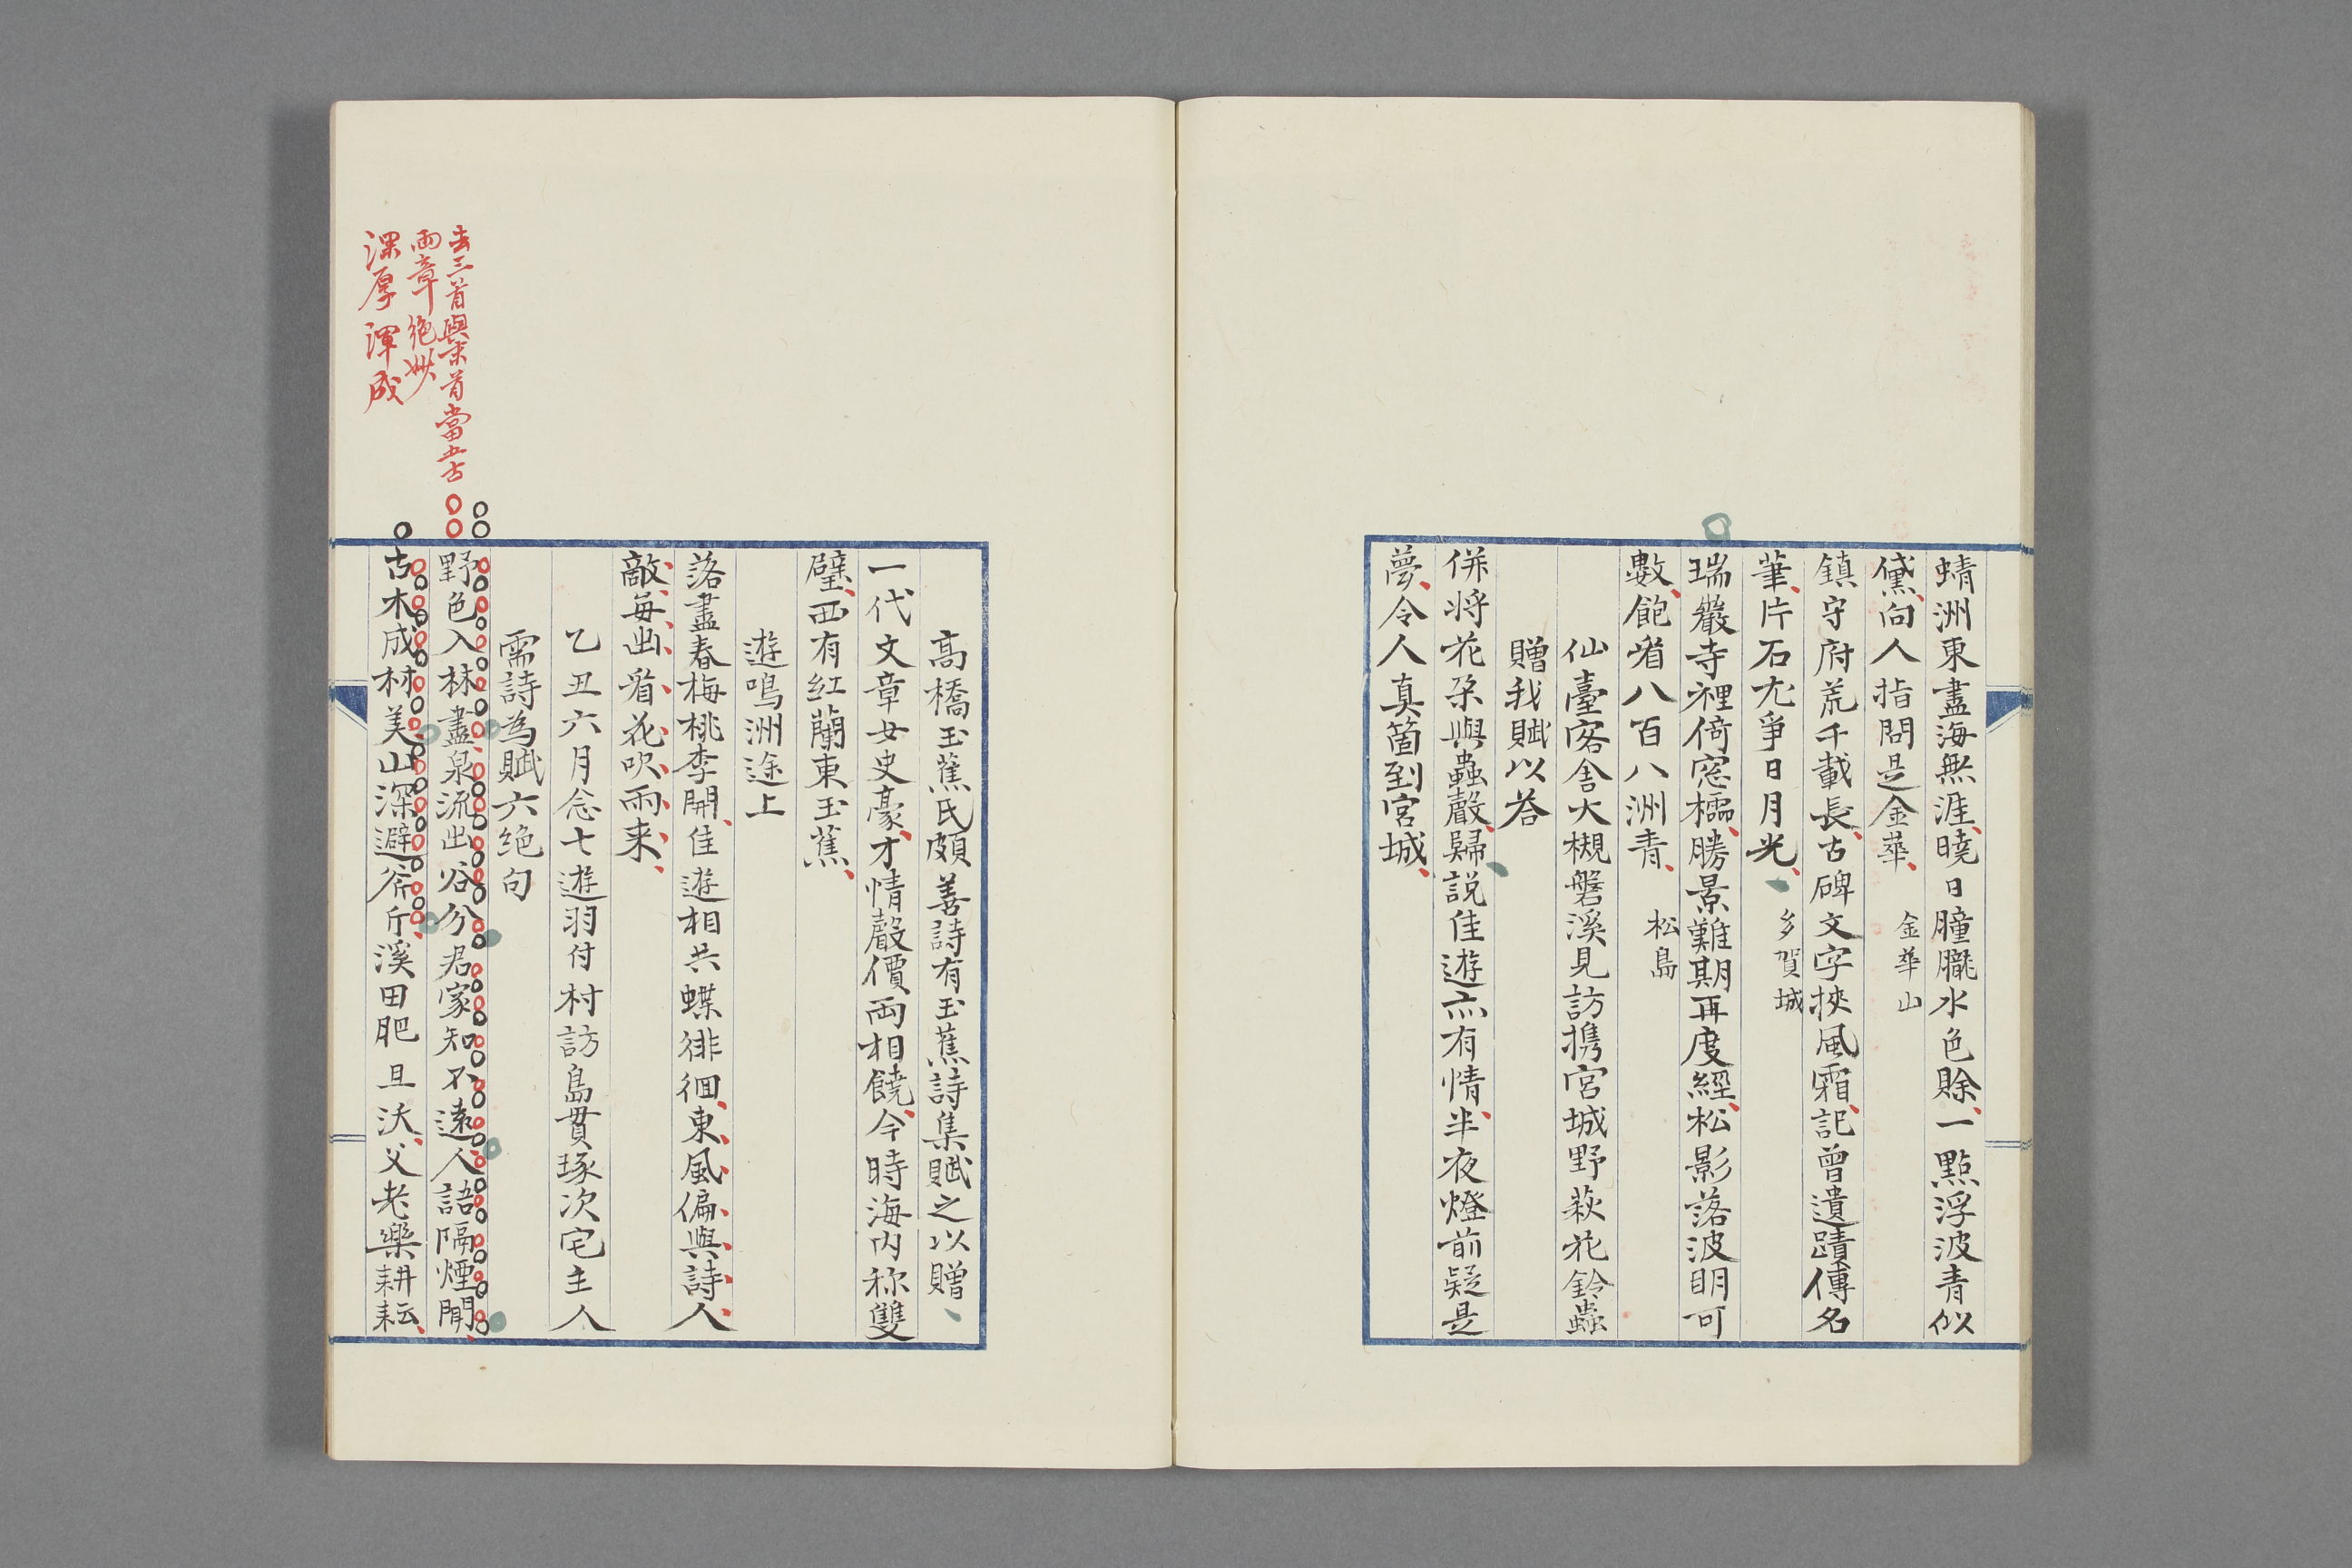 蜻洲東盡海無涯曉日朣朧水色賒一點浮波青似
黛向人指問是金華　金華山
鎮守府荒千載長古碑文字挾風霜記曾遺蹟傳名
筆片石尤爭日月光　多賀城
瑞巖寺裡倚窓櫺勝景難期再度經松影落波明可
數飽看八百八洲青　松島
仙臺客舎大槻磐溪見訪携宮城野萩花鈴蟲
贈我賦以荅
併将花朶與蟲聲歸説佳遊亦有情半夜燈前疑是
夢令人真箇到宮城
高橋玉蕉氏頗善詩有玉蕉詩集賦之以贈
一代文章女史豪才情聲價両相饒今時海内称雙
璧西有紅蘭東玉蕉
遊鳴洲途上
落盡春梅桃李開佳遊相共蝶徘徊東風偏與詩人
敵每出看花吹雨来
乙丑六月念七遊羽付村訪島貫琢次宅主人
需詩為賦六絶句
野色入林盡泉流出谷分君家知不遠人語隔煙聞
古木成材美山深避斧斤溪田肥且沃父老樂耕耘
去三首與末首當五古
両章絶妙
深厚渾成